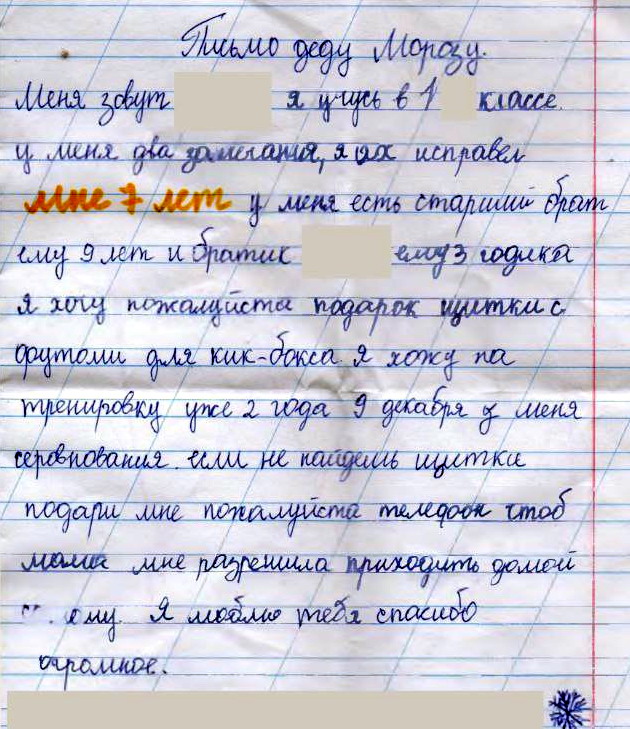 Письмо деду Морозу.
Меня зовут я учусь в 1 классе.
у меня два замечания, я их исправел
мне 7 лет у меня есть старший брат
ему 9 лет и братик ему 3 годика
я хочу пожалуйста подарок щитки с
футами для кик-бокса я хожу на
тренировку уже 2 года 9 декабря у меня
серовнования. если не найдешь щитки
подари мне пожалуйста телефон чтоб
мама мне разрешила приходить домой
Я люблю тебя спасибо
огромное.